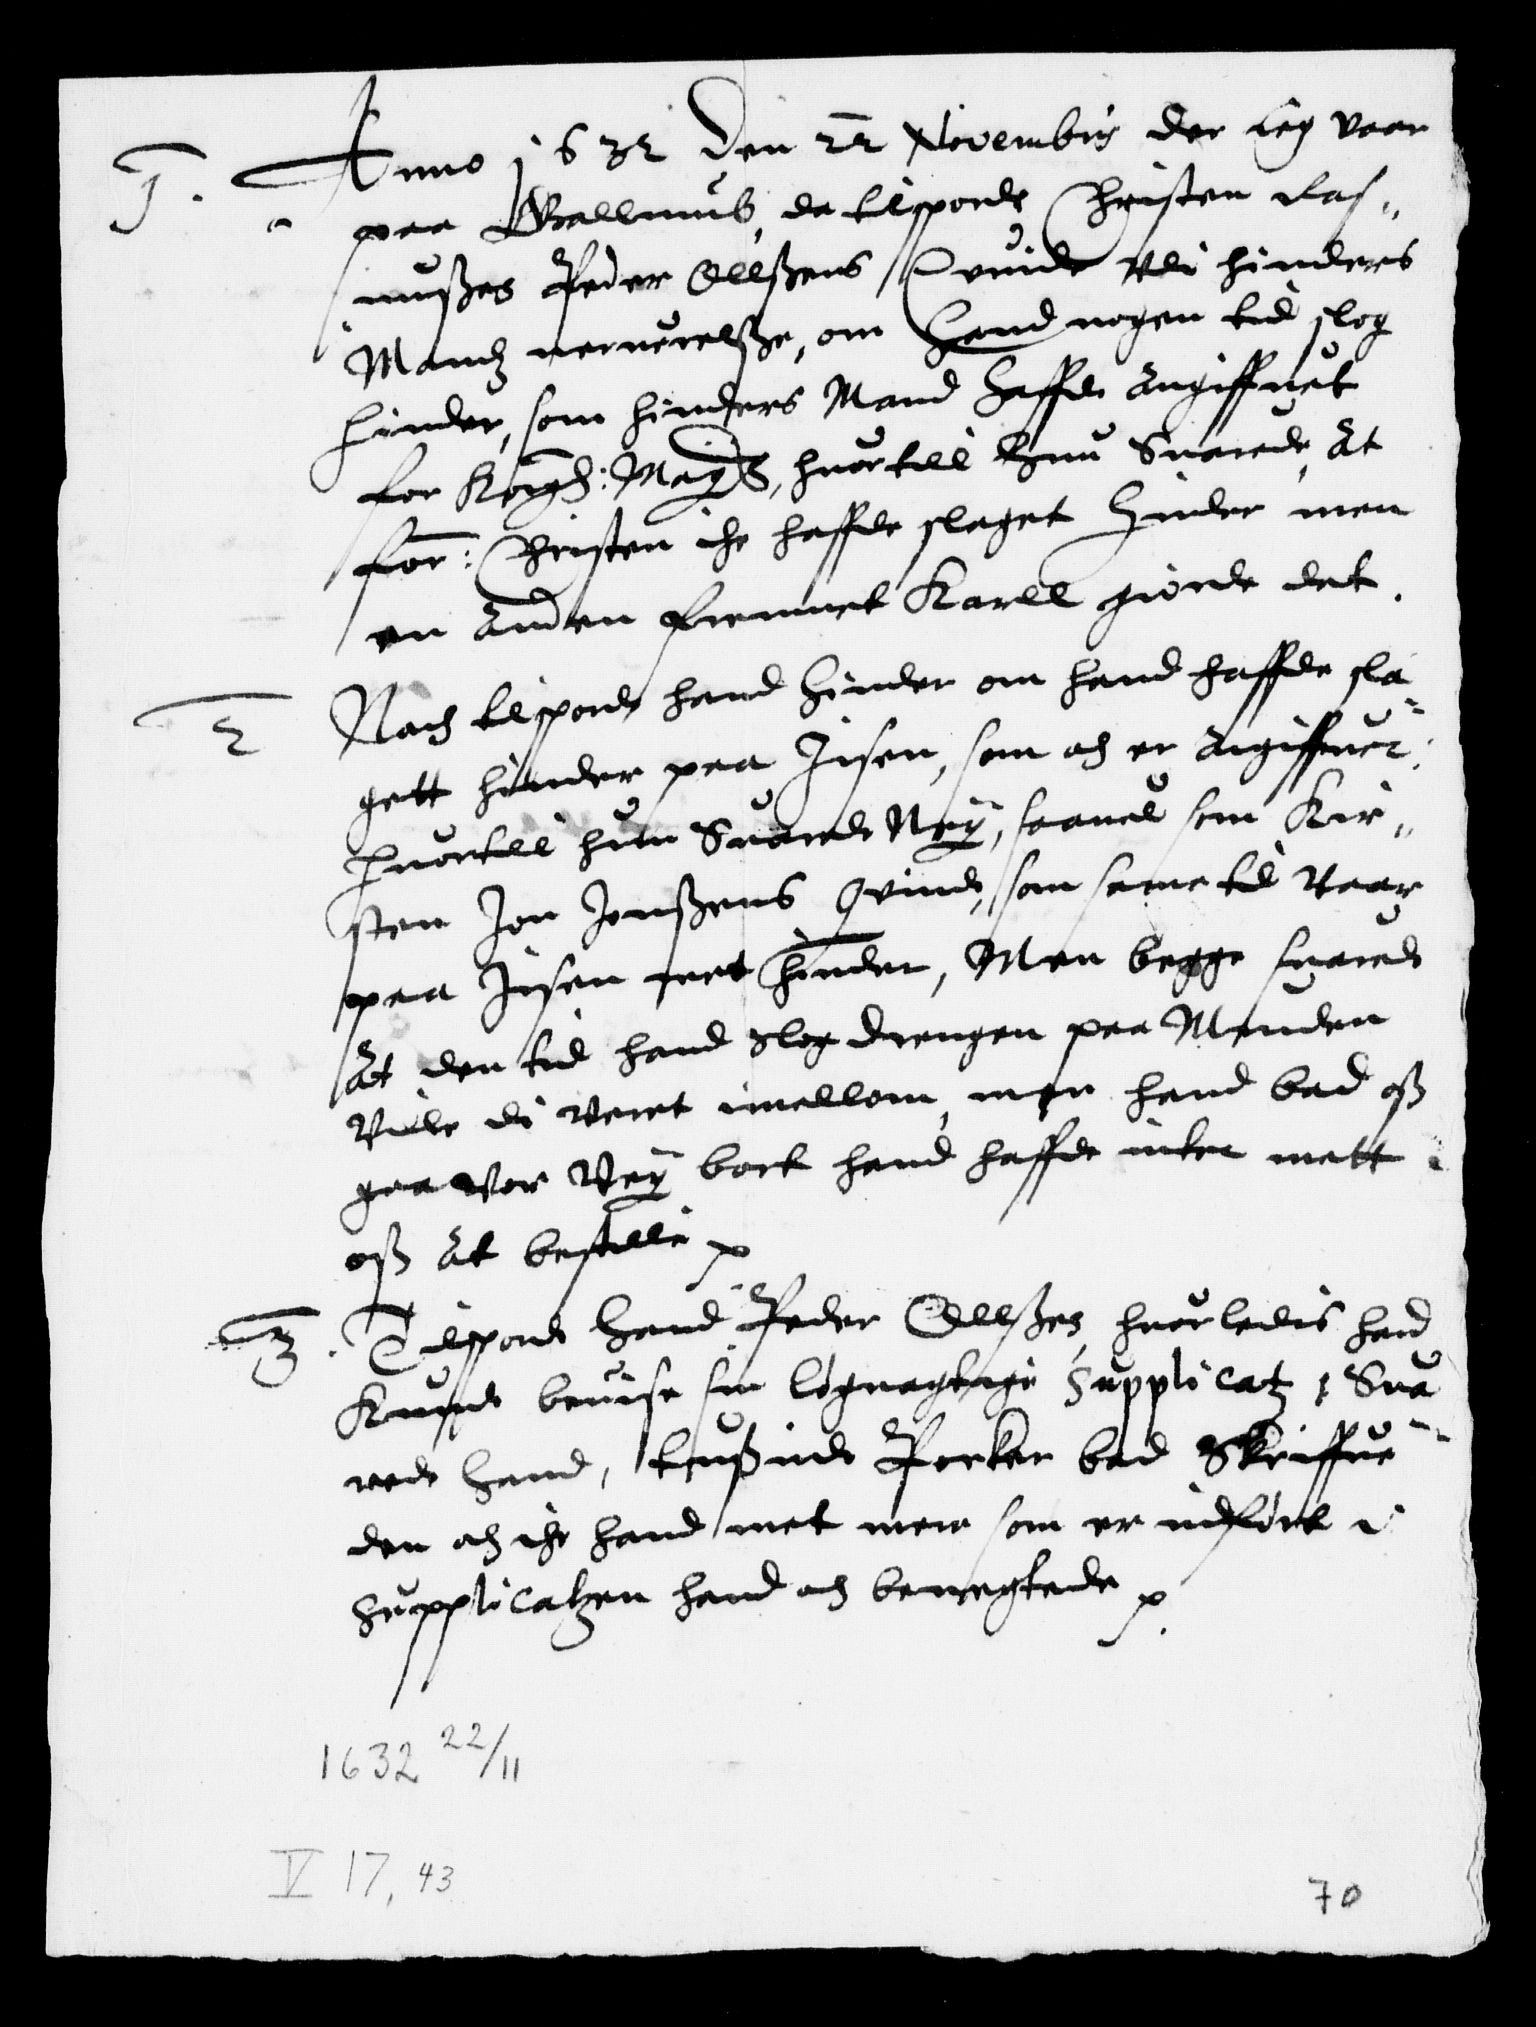 1. Anno 1632 den 22 Novembris der Jeg vaar
paa Wallnub, da tilsporde Christen Ras¬
mußes Peder Ollßens Qvinde vdi hinders
Mandz neruerelße, om Hand nogen tid slog
hinder, som hinders Mand haffde angiffuet
for Kongh: Maytt, huortill hun Suarede, At
for: Christen iche haffde slaget hinder men
en Anden fremmet Karll giorde det.
2 Noch tilsporde hand hinder om hand haffde sla¬
gett hinder paa Jisen, som och er angiffuet.
Huortill hun Suarede Ney, saauel som Kir¬
sten Jon Jenßens Qvinde, som same tid vaar
paa Jisen met hinder, Men begge suarede
At den tid hand slog drengen paa Munden
Vilde di veret imellom, men hand bad oß
gaa vor Vey bort hand haffde intet mett
oß At bestille
3. Tilsporde Hand Peder Ollßes, huorledis hand
Kunde beuise sin løgnagtige Supplicatz, Sua¬
rede Hand, tusinde Perker bad Skriffue
den och iche hand met mere som er indført i
Supplicatzen hand och benegtede
1632 22/11
V 17, 43
70